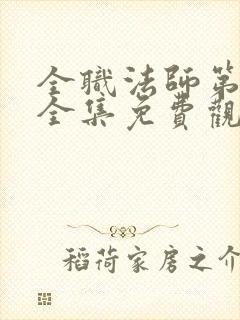 全職法師第
全集免費觀
稻荷家房之介